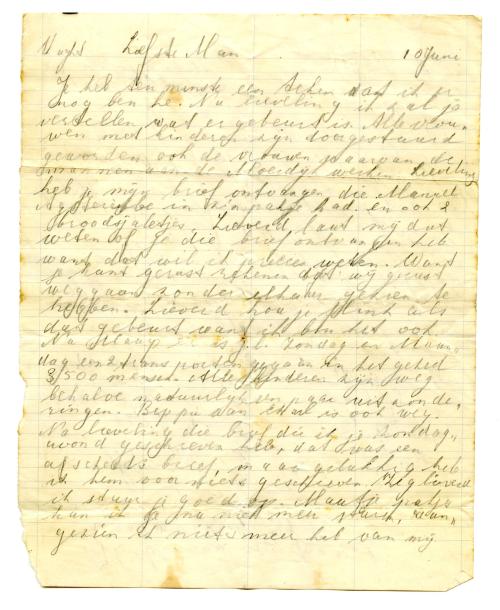 Vught Liefste Man 10 Juni
Je heb ten minste een teken dat ik er
nog ben he. Nu lieveling ik zal je
vertellen wat er gebeurt is. Alle vrou-
wen met kinderen zijn doorgestuurd
geworden ook de vrouwen waarvan de
mannen aan de Moerdijk werken. Lieveling
heb je mijn brief ontvangen die Manuel
in zijn had. en ook 2
broodzakjes. Lieverd laat mij dat
weten of je die brief ontvangen heb
want dat wil ik precies weten. Want
je kant gerust rekenen dat wij gerust
weggaan zonder elkaar gezien te
hebben. Lieverd hou je flink als
dat gebeurt want ik ben het ook.
Nu er is j.l. Zondag en Maan-
dag een 2 transporten gegaan in het geheel
3/500 mensen. Alle kinderen zijn weg
behalve natuurlijk een paar uitzonde-
ringen. is ook weg.
Nu lieveling die brief die ik je Zondag-
avond geschreven heb, dat was een
afscheids brief, maar gelukkig heb
ik hem voor niets geschreven. Zeg lieverd
ik stuur je goed op. Maar je
kan ik je nu niet meer sturen, aan-
gezien ik niets meer heb van mij